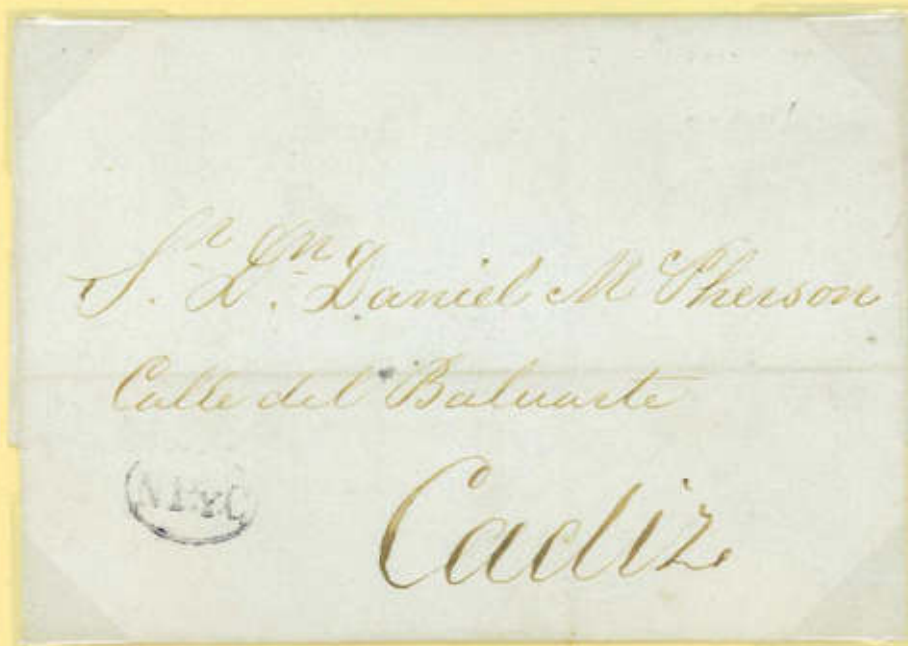 S.r D.n Daniel McPherson
Calle del Baluarte
Cadiz